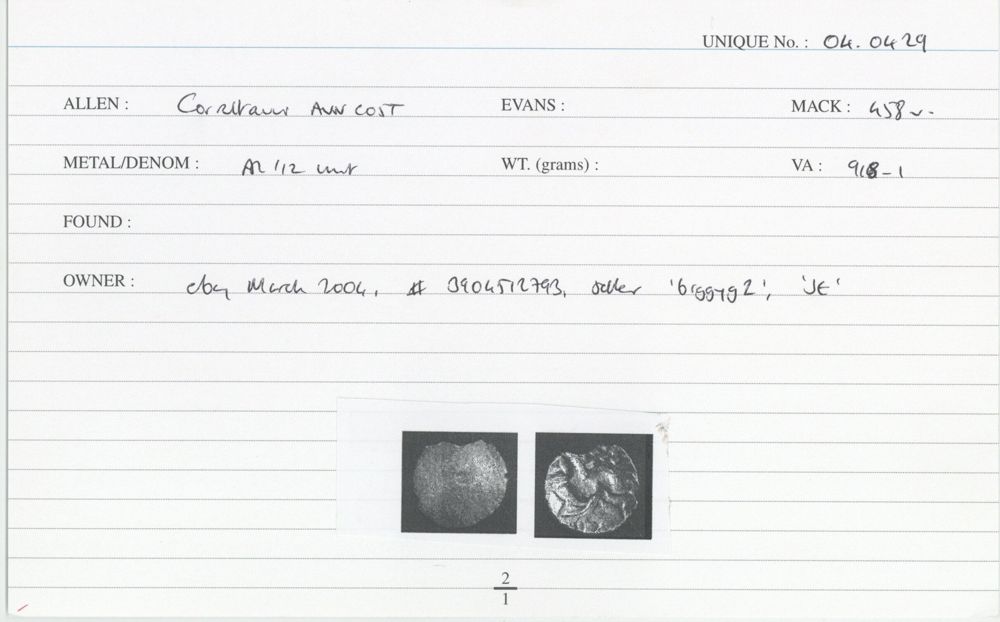 UNIQUE No. : 04. 0429
ALLEN : Corieltauvi AVN COST EVANS : MACK : 458 v.
METAL/DENOM : AR 1/2 unit WT. (grams) : VA : 918-1
FOUND :
OWNER : ebay March 2004, # 3904512793, seller 'biggyg2', 'JE'
2
1